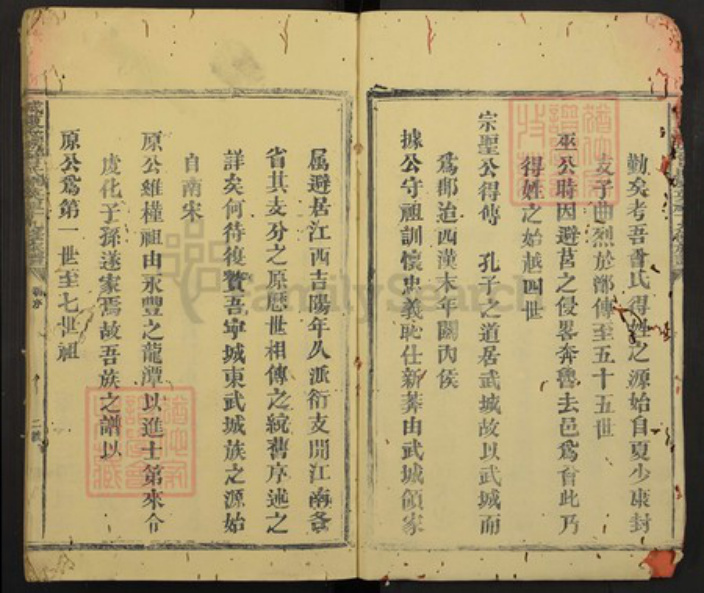 勤矣考吾曾氏得姓之源始自夏少康封
支子曲烈於鄫傳至五十五世
巫公時因避莒之侵畧奔魯去邑爲曾此乃
得姓之始越四世
宗聖公得傳 孔子之道居武城故以武城而
爲郡迨西漢末年關內侯
據公守祖訓懷忠義恥仕新莽由武城領家
屬避居江西吉陽年久派衍支開江南各
省其支分之原歷世相傳之統舊序述之
詳矣何待復贅吾寧城東武城族之源始
自南宋
原公維權祖由永豐之龍潭以進士第來令
虔化子孫遂家焉故吾族之譜以
原公爲第一世至七世祖
FamilySearch